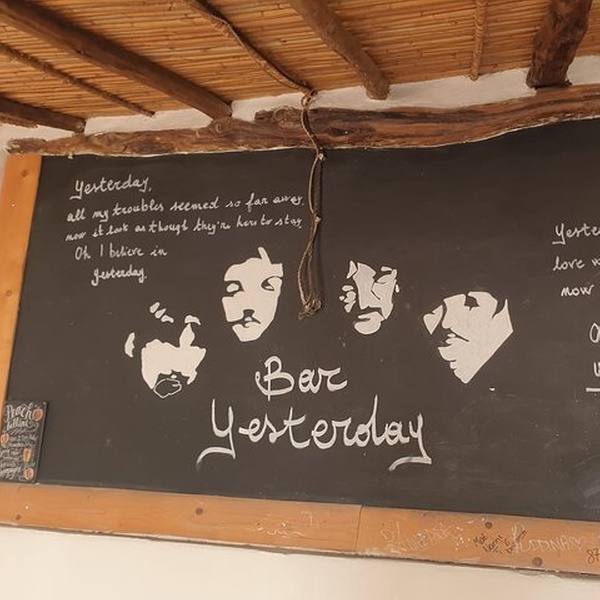 Yesterday,
all my troubles seemed so far away,
now it look as though they're here to stay
Oh I believe in
yesterday
Bar
Yesterday
Yeste
love w
now
O
Peach
bellini